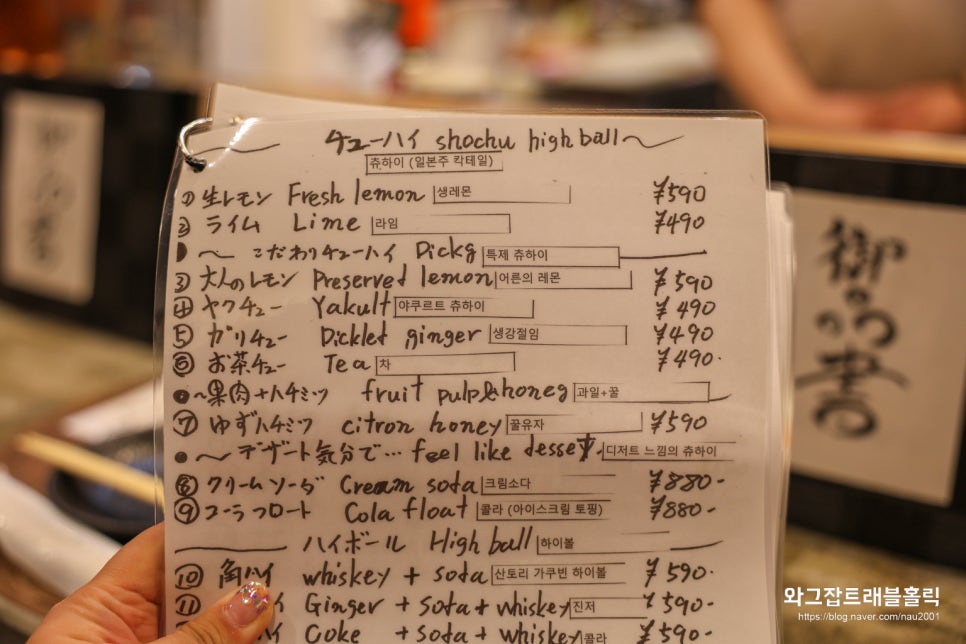 チューハイ shochu high ball～
츄하이 (일본주 칵테일)
① 生レモン Fresh lemon 생레몬 ¥590
② ライム Lime 라임 ¥490
～ こだわりチューハイ Dickg 특제 츄하이
③ 大人のレモン Preserved lemon 어른의 레몬 ¥590
④ ヤクチュー Yakult 야쿠르트 츄하이 ¥490
⑤ ガリチュー Dickled ginger 생강절임 ¥490
⑥ お茶チュー Tea 차 ¥490.
～果肉+ハチミツ fruit pulp&honeg 과일+꿀
⑦ ゆずハチミツ citron honey 꿀유자 ¥590
～ デザート気分で… feel like dessert. 디저트 느낌의 츄하이
⑧ クリームソーダ Cream soda 크림소다 ¥880-
⑨ コーラフロート Cola float 콜라 (아이스크림 토핑) ¥880-
ハイボール High ball 하이볼
⑩ 角ハイ whiskey + soda 산토리 가쿠빈 하이볼 ¥590.
⑪ イ Ginger + sota + whiskey 진저 ¥590-
イ Coke + soda + whiskey 콜라 ¥590-
御
와그잡트래블홀릭
https://blog.naver.com/nau2001